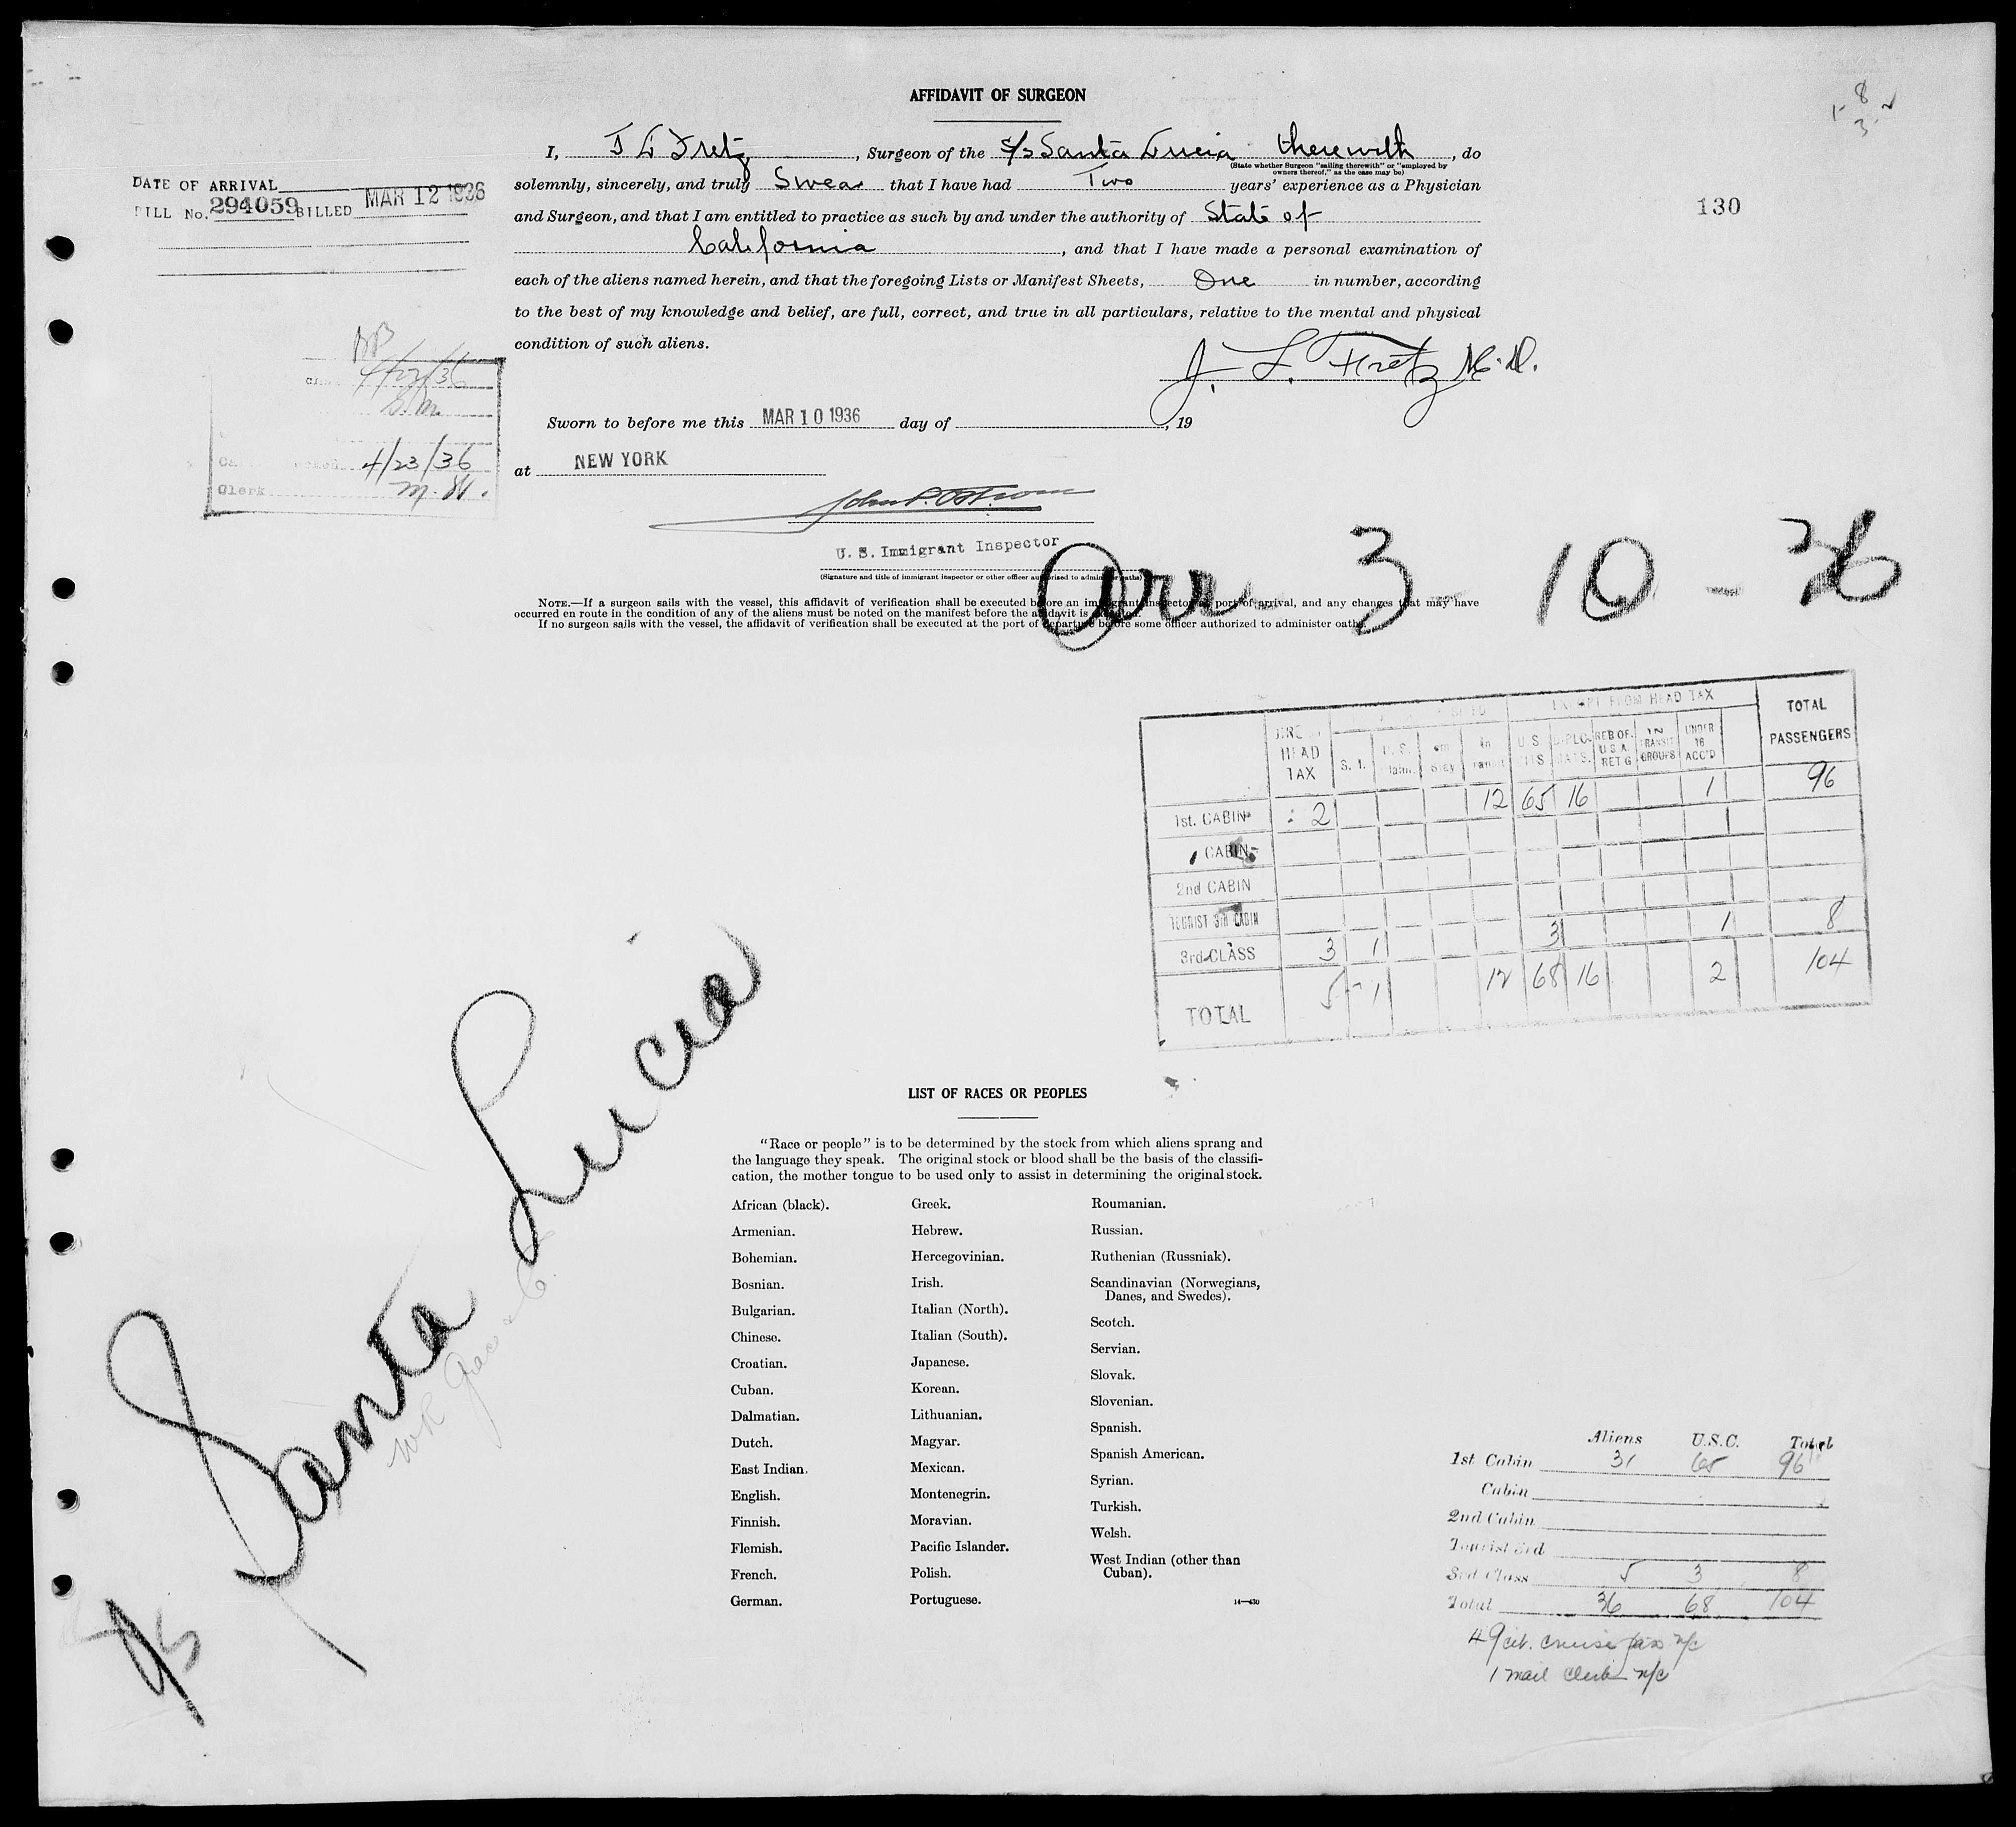 AFFIDAVIT OF SURGEON
8
1- 2
3
I, J L Fretz, Surgeon of the S/s Santa Lucia therewith, do
(State whether Surgeon "sailing therewith" or "employed by
owners thereof," as the case may be)
solemnly, sincerely, and truly Swear that I have had Two years' experience as a Physician
and Surgeon, and that I am entitled to practice as such by and under the authority of State of
California, and that I have made a personal examination of
each of the aliens named herein, and that the foregoing Lists or Manifest Sheets, One in number, according
to the best of my knowledge and belief, are full, correct, and true in all particulars, relative to the mental and physical
condition of such aliens.
J. L. Fretz M.D.
Sworn to before me this MAR 10 1936 day of , 19
at NEW YORK
John P. Ostrom
U. S. Immigrant Inspector
(Signature and title of immigrant inspector or other officer authorized to administer oaths)
NOTE.—If a surgeon sails with the vessel, this affidavit of verification shall be executed before an immigrant inspector port of arrival, and any changes that may have
occurred en route in the condition of any of the aliens must be noted on the manifest before the affidavit is
If no surgeon sails with the vessel, the affidavit of verification shall be executed at the port of departure before some officer authorized to administer oaths.
DATE OF ARRIVAL
BILL No. 294059 BILLED MAR 12 1936
130
4/22/36
S.M.
4/23/36
Clerk M.W.
Arr 3 - 10 - 36
EXEMPT FROM HEAD TAX
TOTAL PASSENGERS
HEAD TAX
S. I.
U. S.
In Transit
U.S. CITS
DIPLOMATS.
REB OF. U S A. RET G
IN TRANSIT GROUPS
UNDER 16 ACC'D
1st. CABIN 2 12 65 16 1 96
CABIN
2nd CABIN
TOURIST 3rd CABIN
3rd CLASS 3 1 3 1 8
TOTAL 5 1 12 68 16 2 104
S/S Santa Lucia
W R Grace & Co
LIST OF RACES OR PEOPLES
"Race or people" is to be determined by the stock from which aliens sprang and
the language they speak. The original stock or blood shall be the basis of the classifi-
cation, the mother tongue to be used only to assist in determining the original stock.
African (black).
Armenian.
Bohemian.
Bosnian.
Bulgarian.
Chinese.
Croatian.
Cuban.
Dalmatian.
Dutch.
East Indian.
English.
Finnish.
Flemish.
French.
German.
Greek.
Hebrew.
Hercegovinian.
Irish.
Italian (North).
Italian (South).
Japanese.
Korean.
Lithuanian.
Magyar.
Mexican.
Montenegrin.
Moravian.
Pacific Islander.
Polish.
Portuguese.
Roumanian.
Russian.
Ruthenian (Russniak).
Scandinavian (Norwegians,
Danes, and Swedes).
Scotch.
Servian.
Slovak.
Slovenian.
Spanish.
Spanish American.
Syrian.
Turkish.
Welsh.
West Indian (other than
Cuban).
14—430
Aliens U.S.C. Total
1st Cabin 31 65 96
Cabin
2nd Cabin
Tourist 3rd
3rd Class 5 3 8
Total 36 68 104
49 cit. cruise pax n/c
1 mail clerk n/c